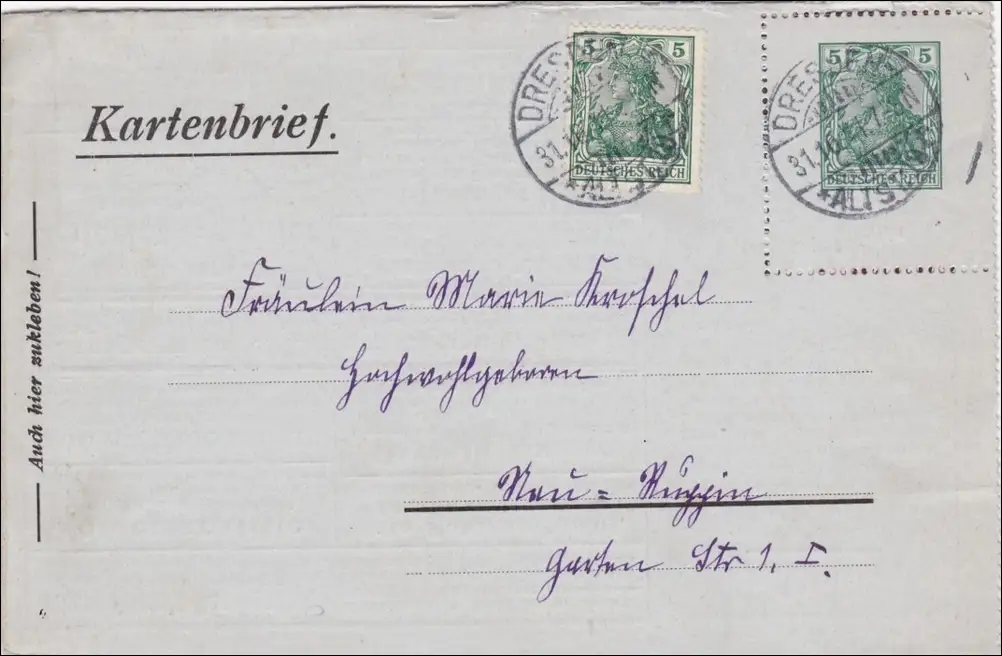 Kartenbrief.
5 5
DEUTSCHES REICH
DRESDEN
31.10.
*ALTST.
5 5
DEUTSCHES REICH
DRESDEN
31.10.
*ALTST.
Auch hier zukleben!
Fräulein Marie Kroschel
Hochwohlgeboren
Neu = Ruppin
Garten Str 1. I.